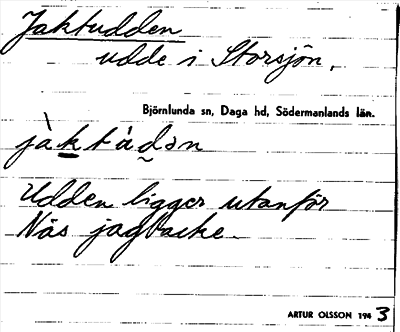 Jaktudden
udde i Storsjön.
Björnlunda sn, Daga hd, Södermanlands län.
jàktúdən
Udden ligger utanför
Näs jagbacke.
ARTUR OLSSON 1943